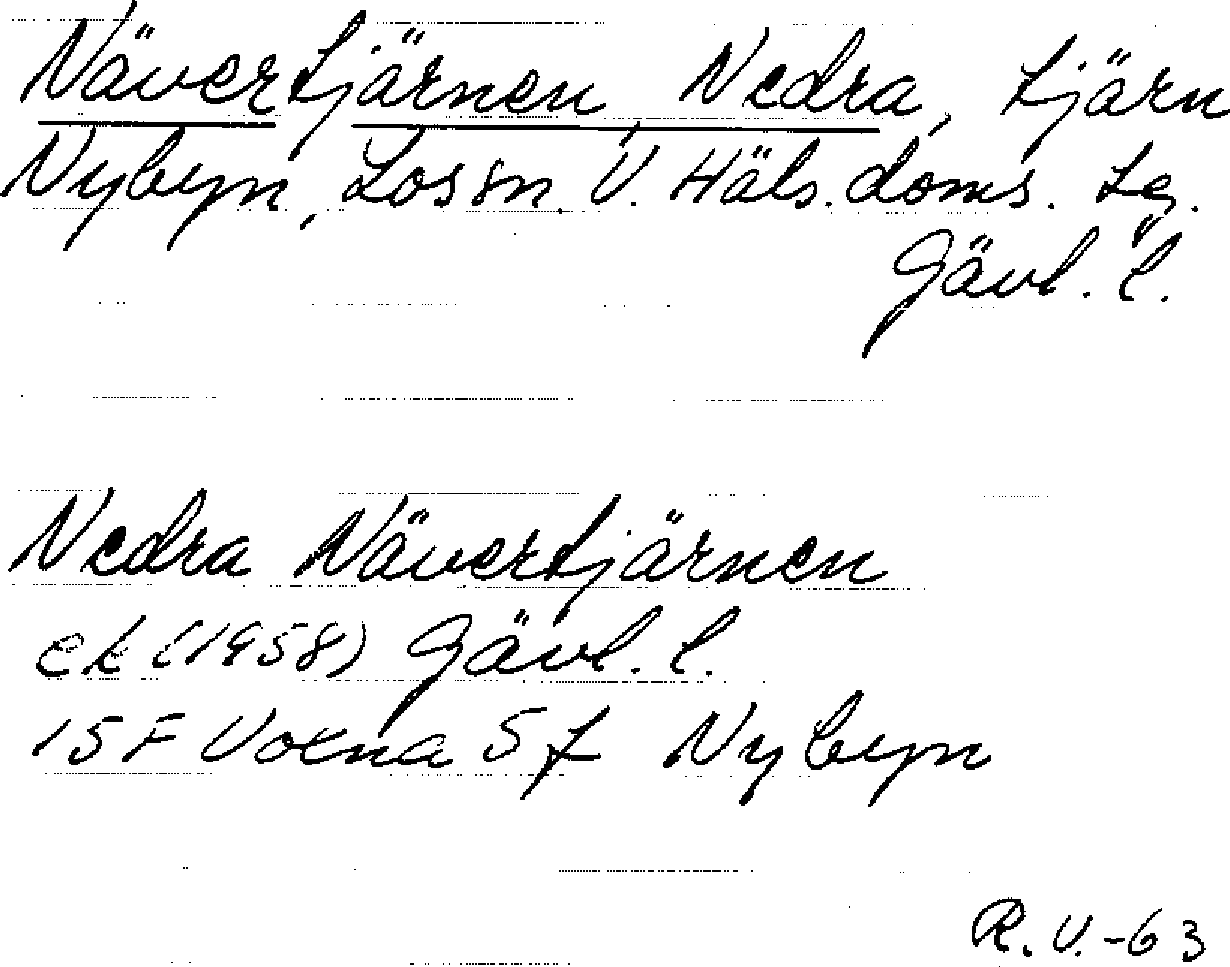 Nävertjärnen, Nedra, tjärn
Nybyn, Los sn. V. Häls. doms. tg.
Gävl. l.
Nedra Nävertjärnen
ek (1958) Gävl. l.
15F Voxna 5f Nybyn
R.V.-63